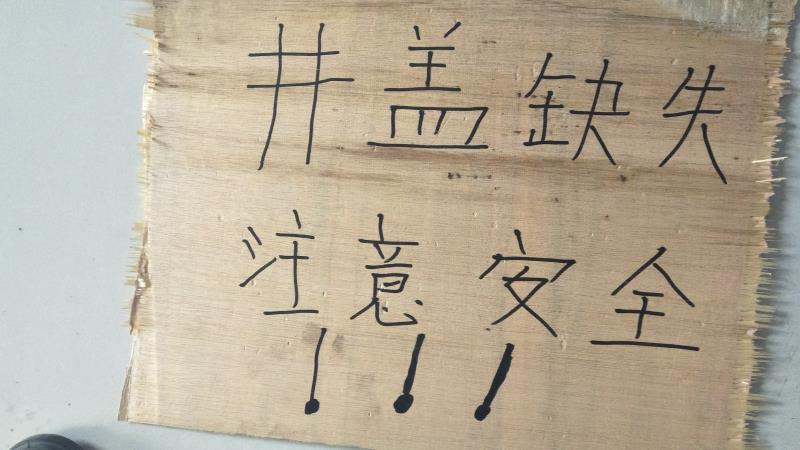 井盖缺失
注意安全
!!!